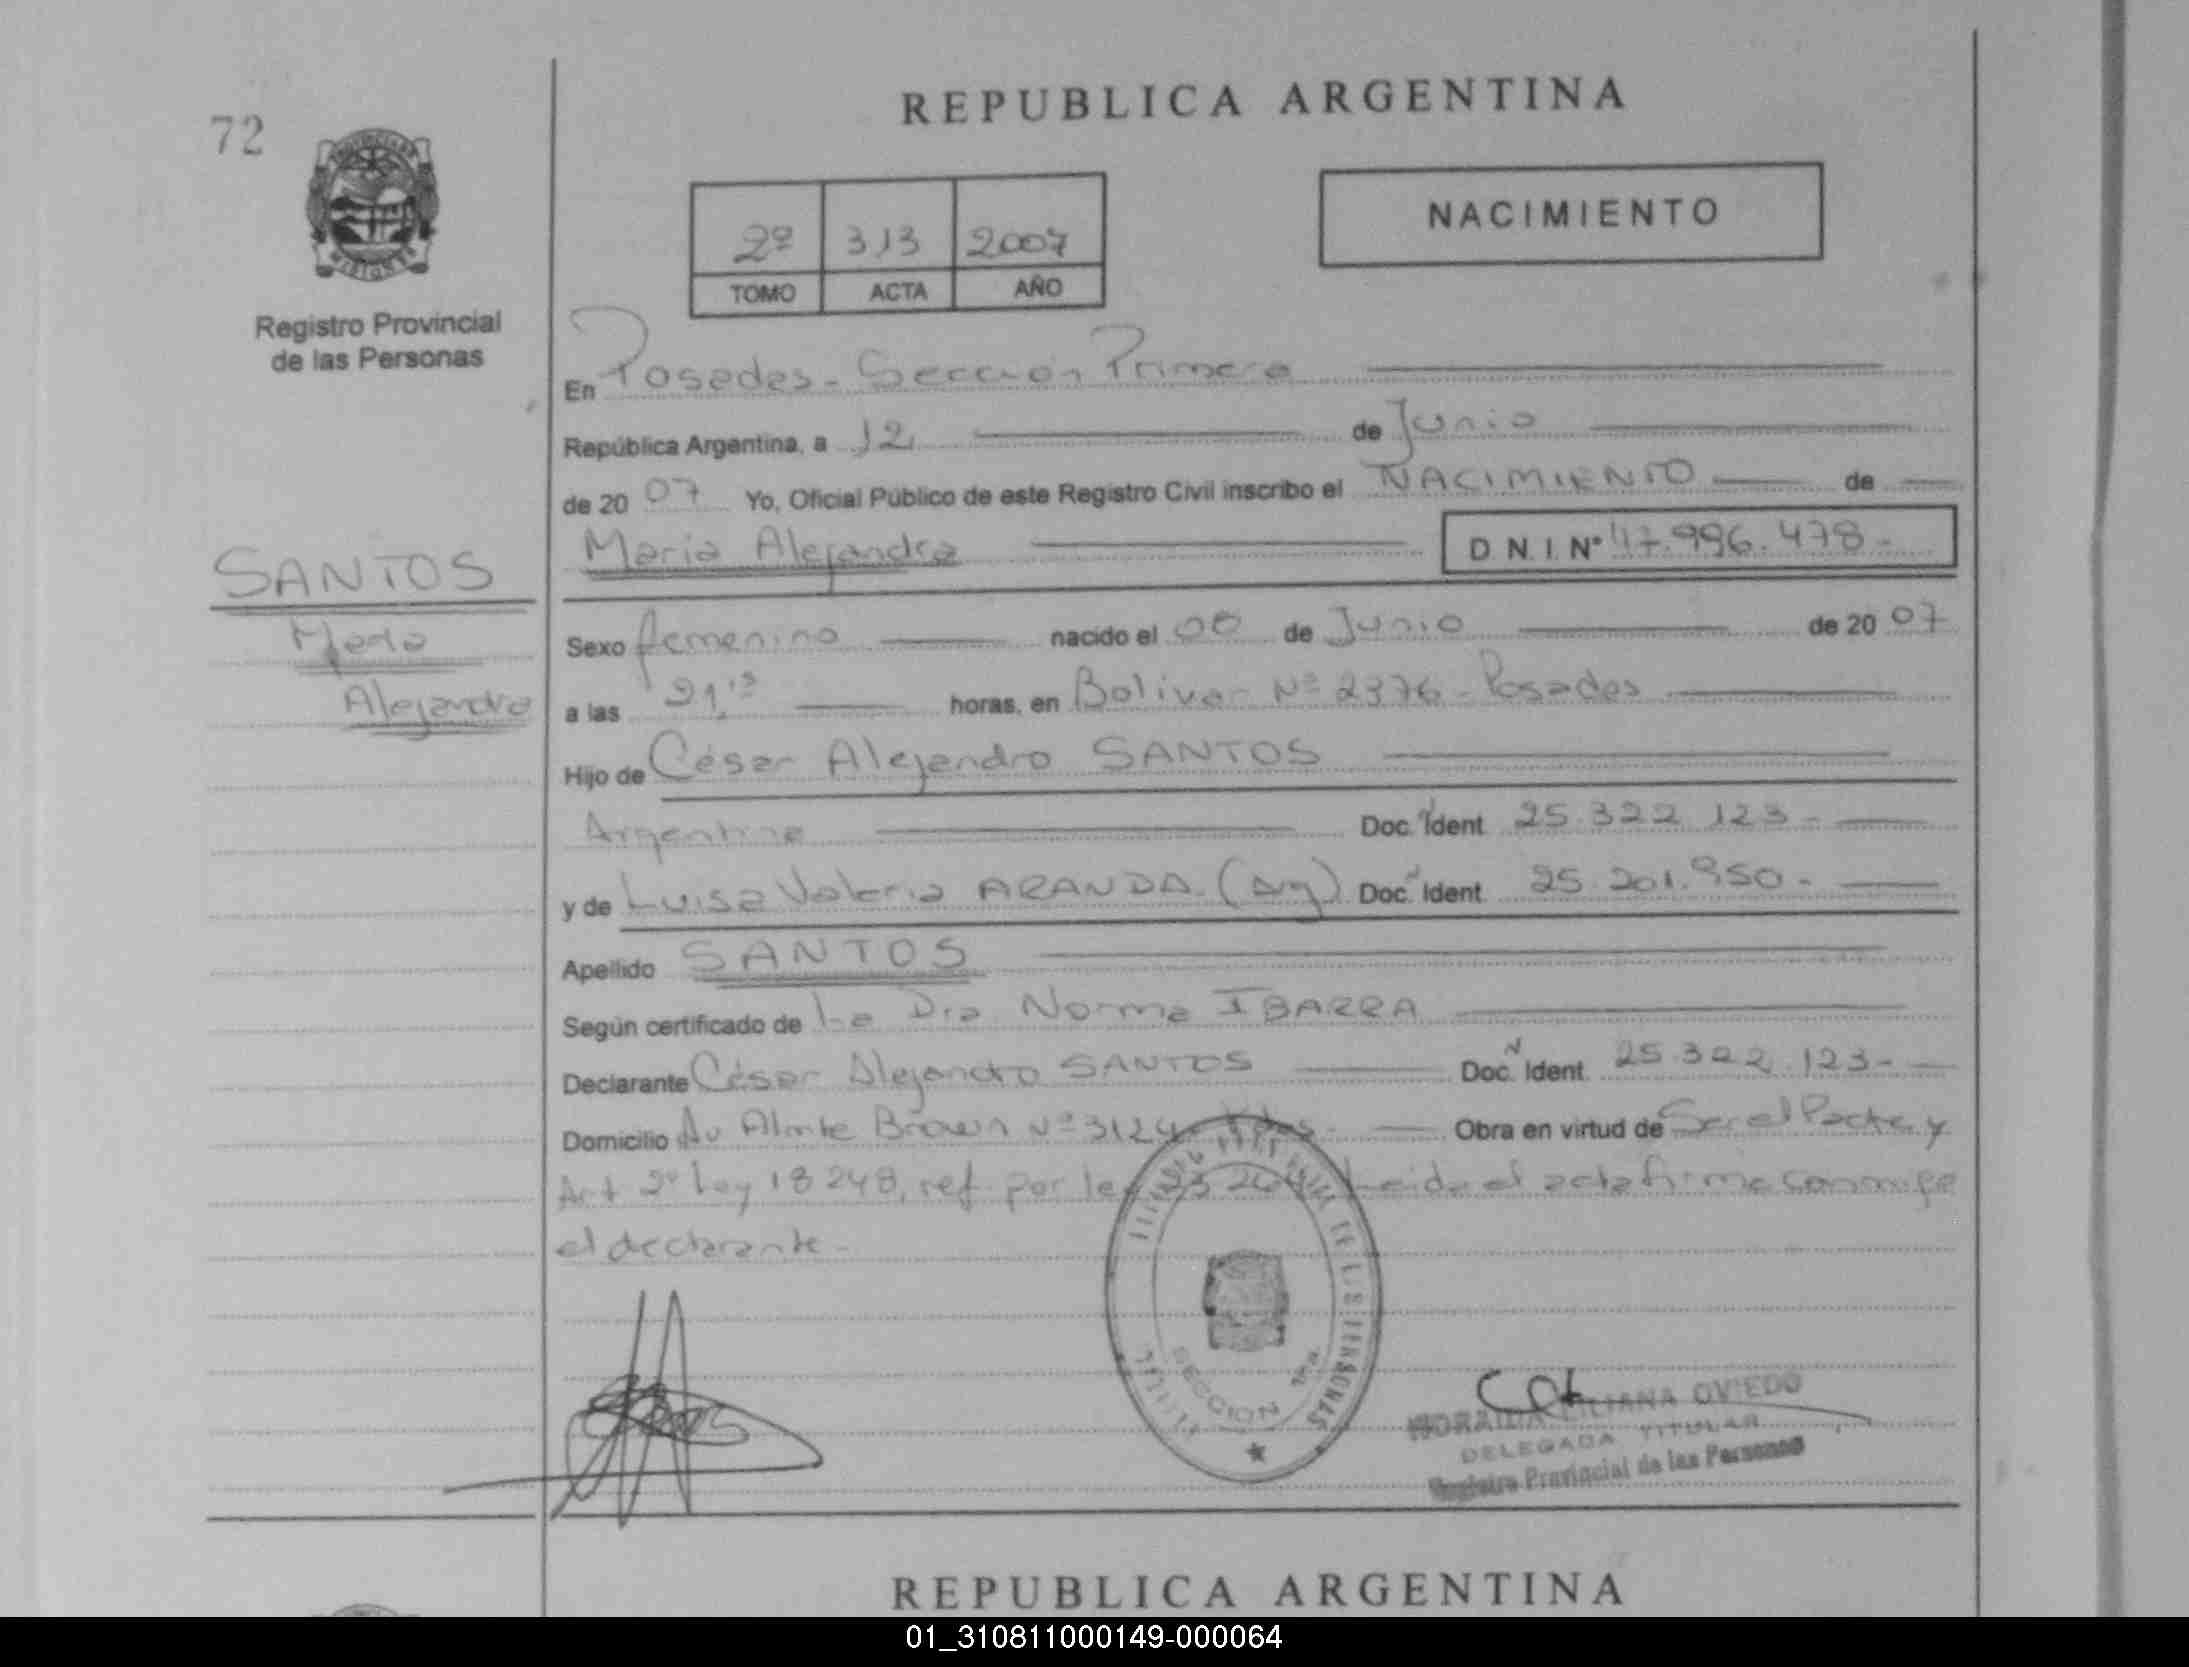 72
REPUBLICA ARGENTINA
2º 313 2007
TOMO ACTA AÑO
NACIMIENTO
PROVINCIA DE
MISIONES
Registro Provincial
de las Personas
En Posadas - Sección Primera
República Argentina, a 12 de Junio
de 2007 Yo, Oficial Público de este Registro Civil inscribo el NACIMIENTO de
María Alejandra D.N.I. Nº 47.996.478.-
SANTOS
María
Alejandra
Sexo femenino nacido el 08 de Junio de 2007
a las 21,15 horas, en Bolivar Nº 2376 - Posadas
Hijo de César Alejandro SANTOS
Argentina Doc. Ident. 25.322.123-
y de Luisa Valeria ARANDA. (Arg) Doc. Ident. 25.201.950-
Apellido SANTOS
Según certificado de La Dra Norma IBARRA
Declarante César Alejandro SANTOS Doc. Ident. 25.322.123-
Domicilio Av Almte Brown Nº 3124 Obra en virtud de Ser el Padre y
Art 2º Ley 18248, ref. por ley Leida el acta firma conmigo
el declarante -
DE LAS PERSONAS
SECCION 1ra
LILIANA OVIEDO
DELEGADA TITULAR
Registro Provincial de las Personas
REPUBLICA ARGENTINA
01_310811000149-000064